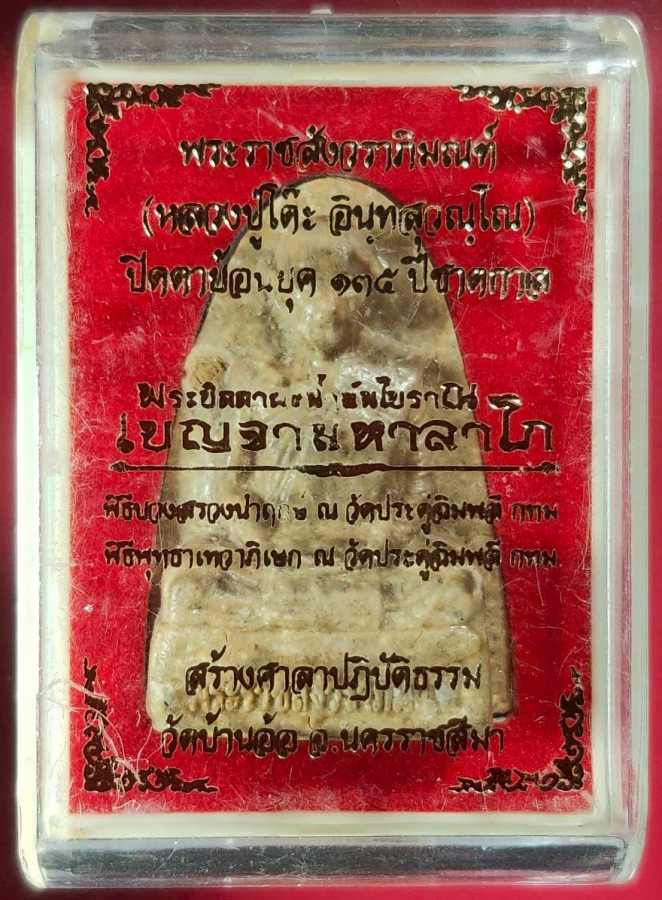 พระราชสังวราภิมณฑ์
(หลวงปู่โต๊ะ อินฺทสุวณฺโณ)
ปิดตาย้อนยุค ๑๓๕ ปีชาตกาล
พระปิดตา
เบญจามหาลาโภ
พิธีบวงสรวงนำฤกษ์ ณ วัดประดู่ฉิมพลี กทม
พิธีพุทธาเทวาภิเษก ณ วัดประดู่ฉิมพลี กทม.
สร้างศาลาปฏิบัติธรรม
วัดบ้านอ้อ จ.นครราชสีมา